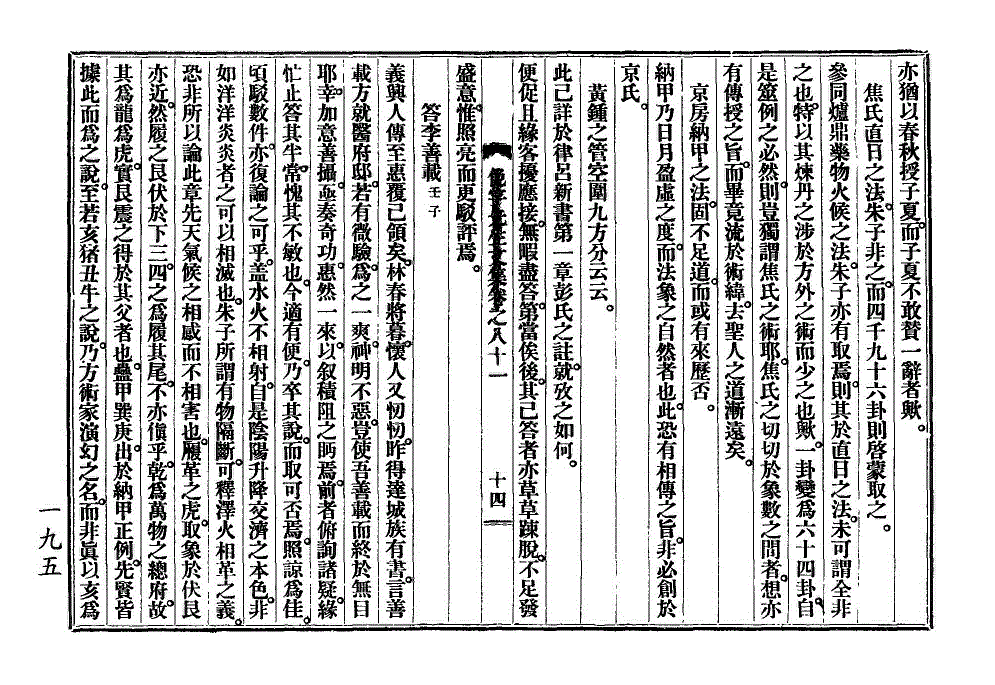 亦猶以春秋授子夏。而子夏不敢贊一辭者歟。
焦氏直日之法。朱子非之。而四千九十六卦則啓蒙取之。
參同爐鼎藥物火候之法。朱子亦有取焉。則其於直日之法。未可謂全非
之也。特以其煉丹之涉於方外之術而少之也歟。一卦變爲六十四卦。自
是筮例之必然。則豈獨謂焦氏之術耶。焦氏之切切於象數之間者。想亦
有傳授之旨。而畢竟流於術緯。去聖人之道漸遠矣。
京房納甲之法。固不足道。而或有來歷否。
納甲乃日月盈虛之度。而法象之自然者也。此恐有相傳之旨。非必創於
京氏。
黃鍾之管空圍九方分云云。
此已詳於律呂新書第一章彭氏之註。就攷之如何。
便促且緣客擾應接。無暇盡答。第當俟後。其已答者亦草草踈脫。不足發
之八十一
十四
盛意。惟照亮而更駁評焉。
答李善載 壬子
義興人傳至惠覆已領矣。林春將暮。懷人又忉忉。昨得達城族有書。言善
載方就醫府邸。若有微驗。爲之一爽。神明不惡。豈使吾善載而終於無目
耶。幸加意善攝。亟奏奇功。惠然一來。以叙積阻之眄焉。前者俯詢諸疑。緣
忙止答其半。常愧其不敏也。今適有便。乃卒其說。而取可否焉。照諒爲佳。
頃駁數件。亦復論之可乎。盖水火不相射。自是陰陽升降交濟之本色。非
如洋洋炎炎者之可以相滅也。朱子所謂有物隔斷。可釋澤火相革之義。
恐非所以論此章先天氣候之相感而不相害也。履革之虎。取象於伏艮
亦近。然履之艮伏於下三四。之爲履其尾。不亦傎乎。乾爲萬物之總府。故
其爲龍爲虎。實艮震之得於其父者也。蠱甲巽庚。出於納甲正例。先賢皆
據此而爲之說。至若亥猪丑牛之說。乃方術家演幻之名。而非眞以亥爲
一九五